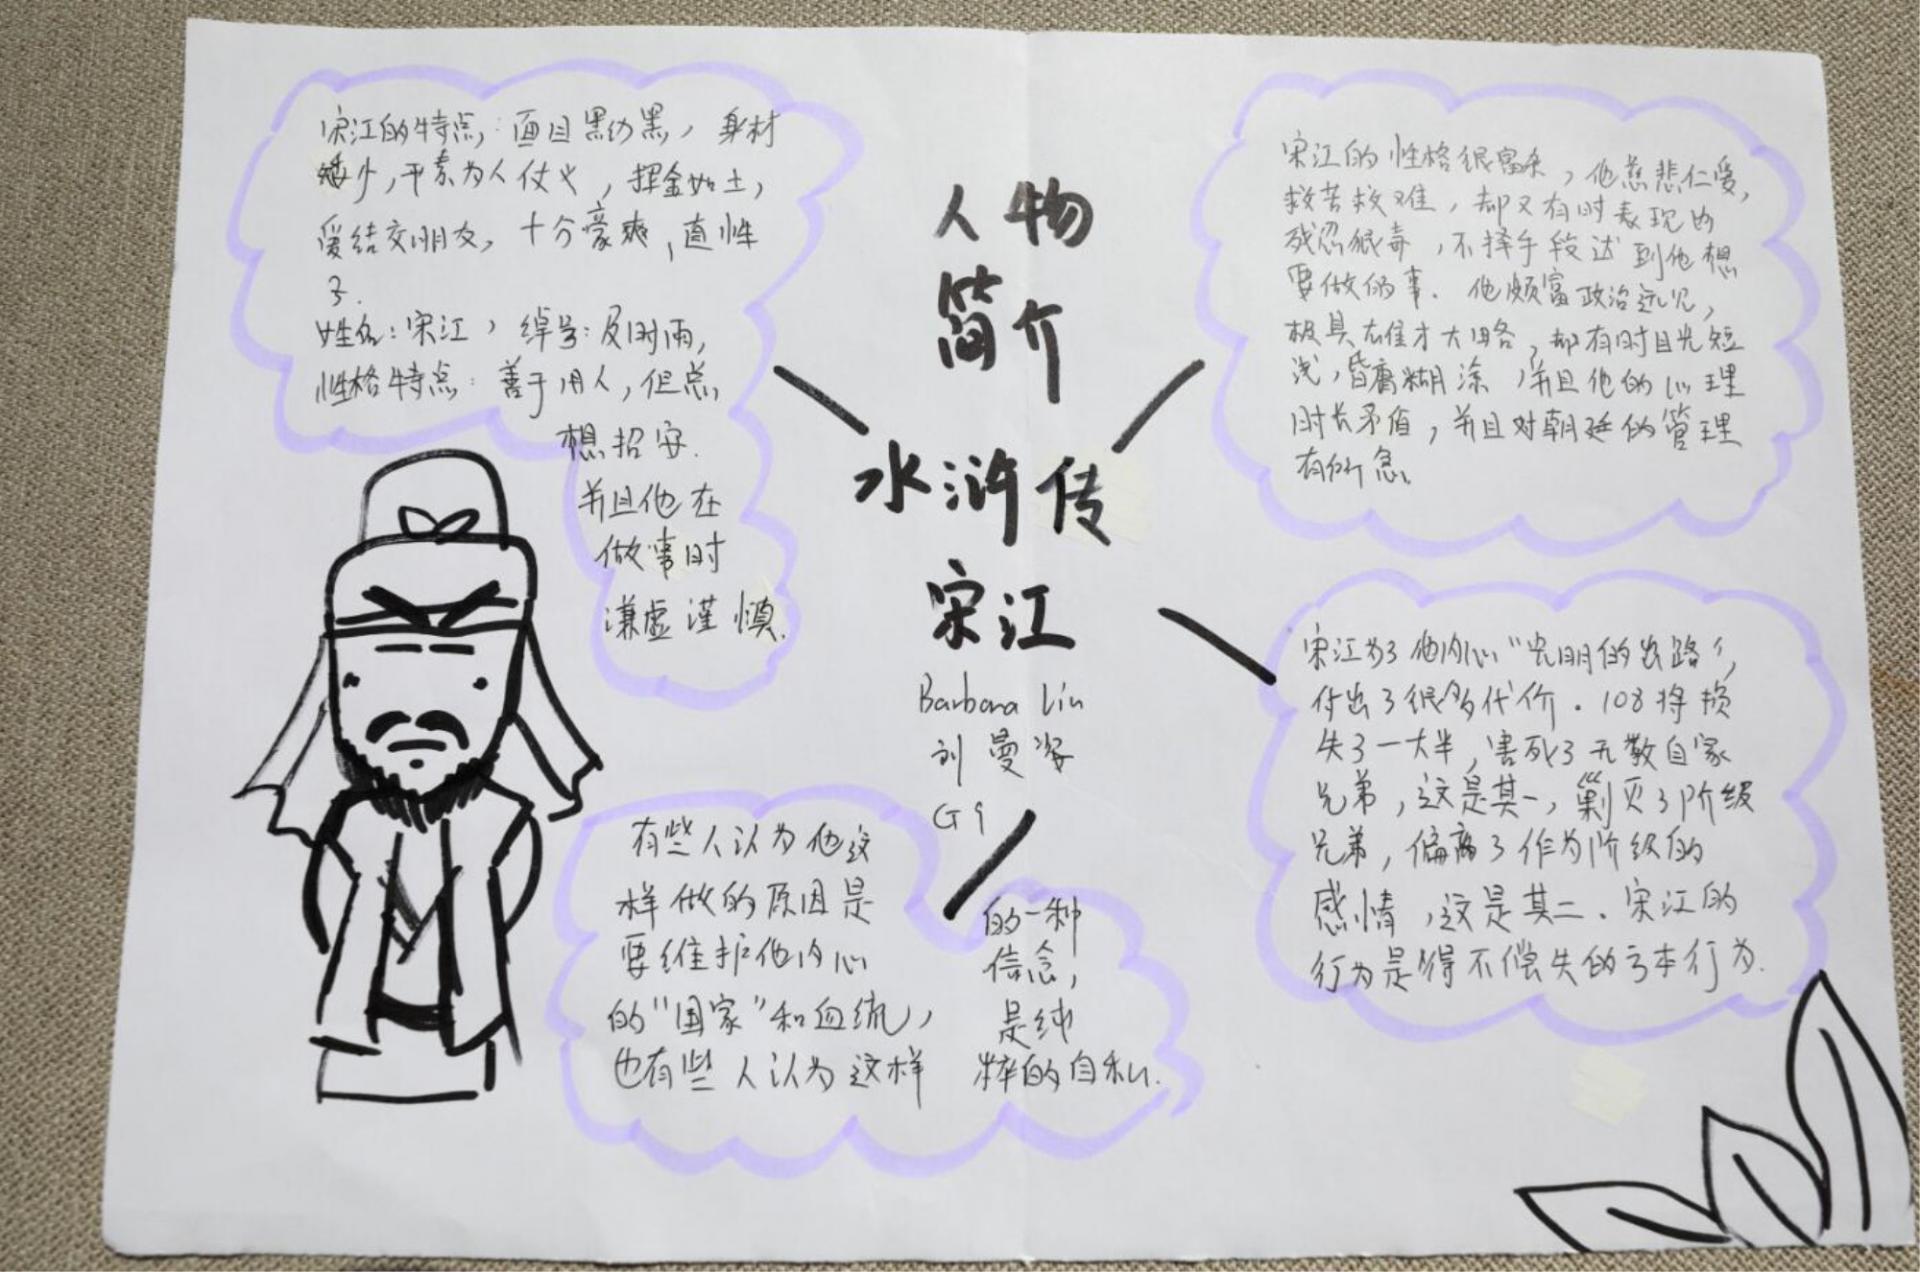 人物
简介
水浒传
宋江
Barbara Liu
刘曼姿
G9
宋江的特点：面目黝黑，身材
矮小，平素为人仗义，挥金如土，
爱结交朋友，十分豪爽，直性
子.
姓名：宋江，绰号：及时雨，
性格特点：善于用人，但总
想招安.
并且他在
做事时
谦虚谨慎.
宋江的性格很富杂，他慈悲仁爱，
救苦救难，却又有时表现的
残忍狠毒，不择手段达到他想
要做的事. 他颇富政治远见，
极具雄才大略，却有时目光短
浅，昏庸糊涂，并且他的心理
时长矛盾，并且对朝廷的管理
有所怠。
宋江为了他内心“光明的出路”，
付出了很多代价. 108将损
失了一大半，害死了无数自家
兄弟，这是其一，剿灭了阶级
兄弟，偏离了作为阶级的
感情，这是其二. 宋江的
行为是得不偿失的亏本行为.
有些人认为他这
样做的原因是
要维护他内心
的“国家”和血统，
也有些人认为这样
的一种
信念，
是纯
粹的自私.